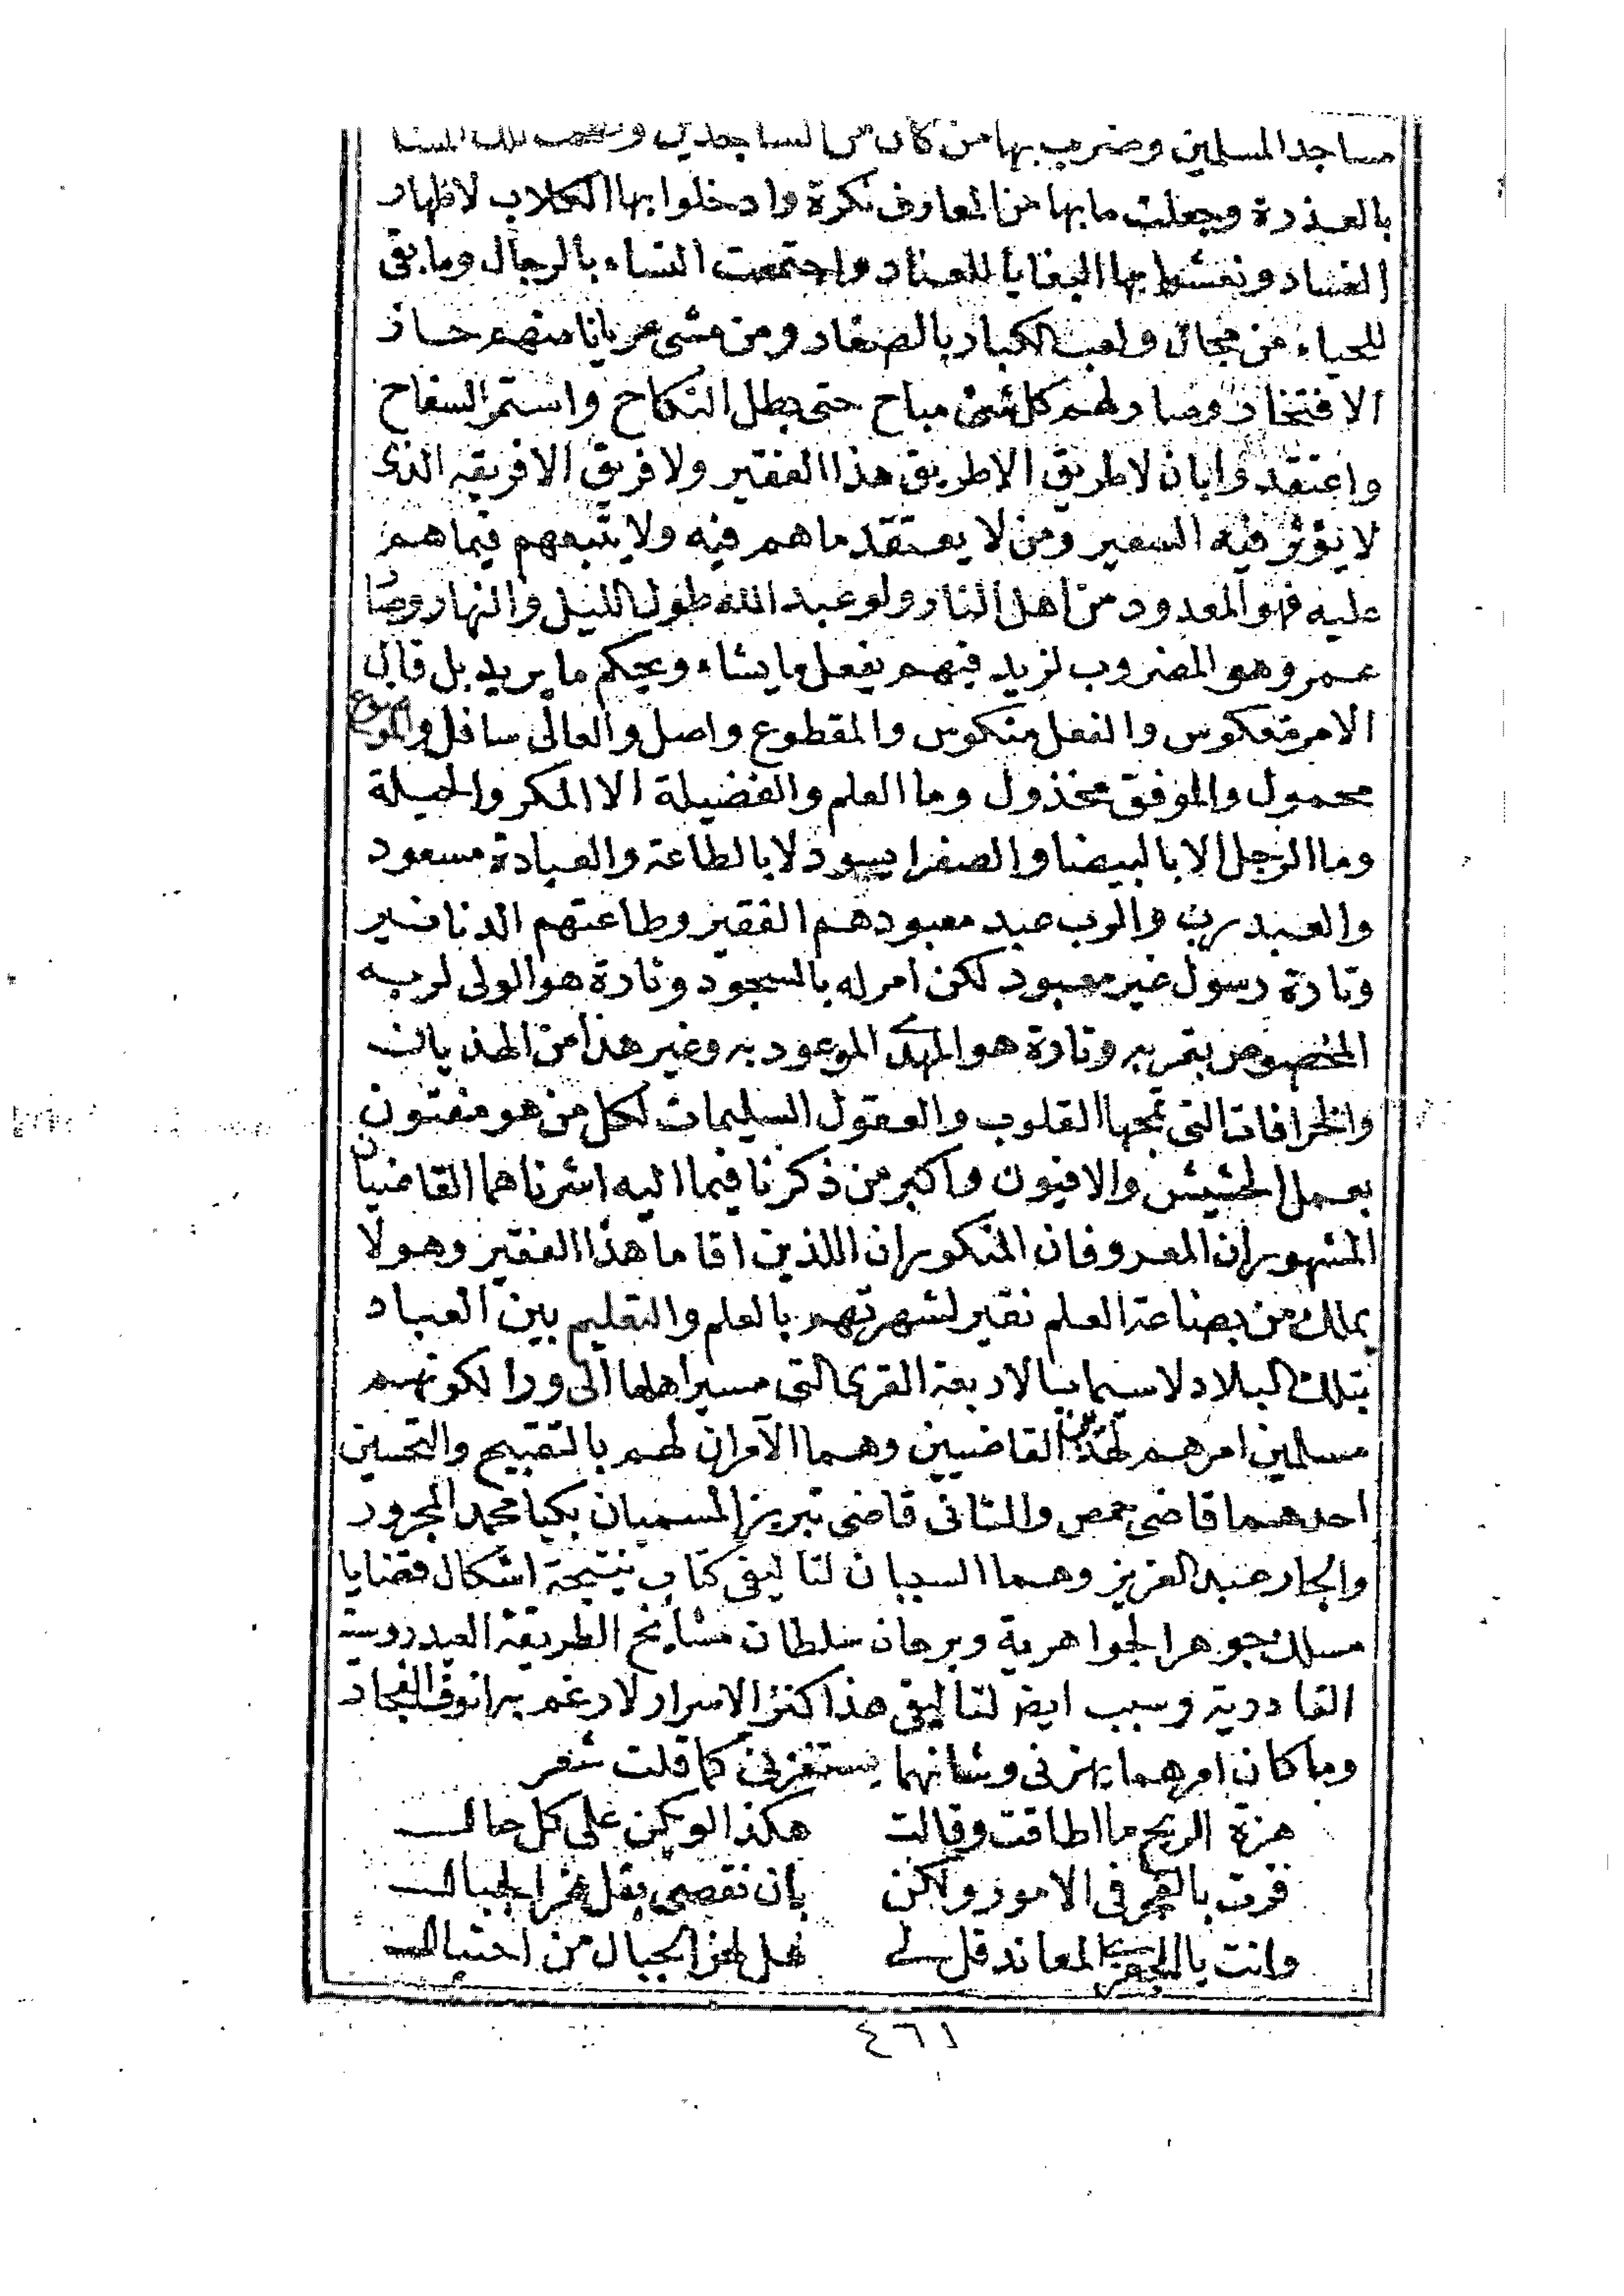 مساجد المسلمين وضرب بها من كان من الساجدين
بالعذرة وجعلت ما بها من المعارف نكرة وادخلوا بها الكلاب لاظهار
الفساد ونفشوا بها البغايا للعناد واجتمعت النساء بالرجال وما بقى
للحياء من مجال ولعب الكبار بالصغار ومن مشى عريانا منهم حاز
الافتخار وصار لهم كل شئ مباح حتى بطل النكاح واستمر السفاح
واعتقدوا بان لا طريق الا طريق هذا الفقير ولا فريق الا فريقه الذى
لا تؤثر فيه السعير ومن لا يعتقد ما هم فيه ولا يتبعهم فيما هم
عليه فهو المعدود من اهل النار ولو عبد الله طول الليل والنهار وصا
عمر وهو المضروب لزيد فيهم يفعل ما يشاء ويحكم ما يريد بل قال
الامر معكوس والفعل منكوس والمقطوع واصل والعالى سافل
محمول والموفق مخذول وما العلم والفضيلة الا المكر والحيلة
وما الرجل الا بالبيضا والصفرا يسود لا بالطاعة والعبادة مسعود
والعبد رب والرب عبد معبودهم الفقير وطاعتهم الدنانير
وتارة رسول غير معبود لكن امر له بالسجود وتارة هو الولى لربه
المخصوص بقربه وتارة هو المهدى الموعود به وغير هذا من الهذيانات
والخرافات التى تمجها القلوب والعقول السليمات لكل من هو مفتون
بعمل الحشيش والافيون واكبر من ذكرنا فيما اليه اشرنا هما القاضيان
المشهوران المعروفان المنكوران اللذين اقاما هذا الفقير وهو لا
يملك من بضاعة العلم نقير لشهرتهم بالعلم والتعليم بين العباد
بتلك البلاد لا سيما بالاربعة القرى التى مسير اهلها الى ورا لكونهم
مسلمين امرهم لهذين القاضيين وهما الآمران لهم بالتقبيح والتحسين
احدهما قاضى حمص والثانى قاضى تبريز المسميان بكيا محمد المجرور
والجار عبد العزيز وهما السببان لتاليفى كتاب نتيجة اشكال قضايا
مسلك جوهر الجواهرية وبرهان سلطان مشايخ الطريقة العيدروسية
القادرية وسبب ايضا لتاليفى هذا كنز الاسرار لارغم به انوف الفجار
وما كان امرهما يهزنى وشانهما يستفزنى كما قلت شعر
هزة الريح ما اطاقت وقالت هكذا لو يكن على كل حال
فزت بالفجر فى الامور ولكن بان نقصى بنقل صخر الجبال
وانت يا المعاند قل لى هل لهز الجبال من احتيال
٤٦١